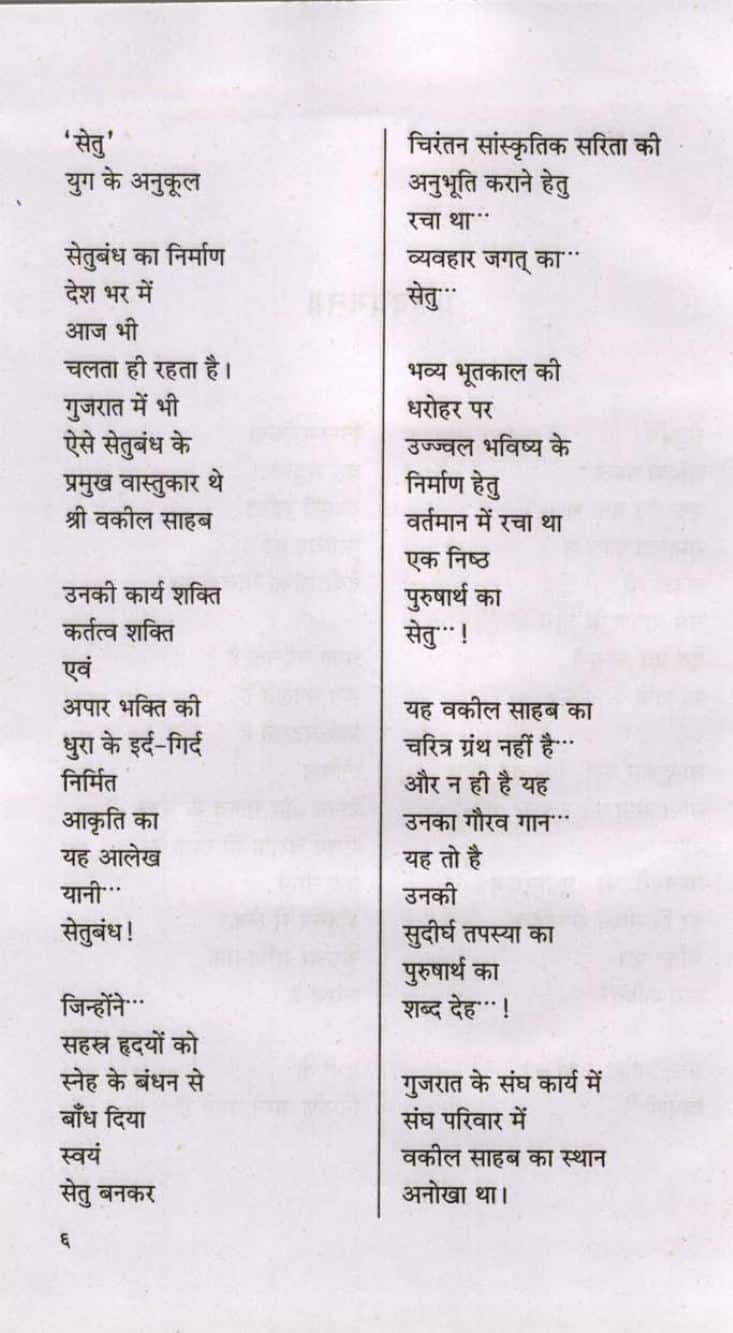 ‘सेतु’
युग के अनुकूल

सेतुबंध का निर्माण
देश भर में
आज भी
चलता ही रहता है।
गुजरात में भी
ऐसे सेतुबंध के
प्रमुख वास्तुकार थे
श्री वकील साहब

उनकी कार्य शक्ति
कर्तत्व शक्ति
एवं
अपार भक्ति की
धुरा के इर्द-गिर्द
निर्मित
आकृति का
यह आलेख
यानी···
सेतुबंध!

जिन्होंने···
सहस्र हृदयों को
स्नेह के बंधन से
बाँध दिया
स्वयं
सेतु बनकर

चिरंतन सांस्कृतिक सरिता की
अनुभूति कराने हेतु
रचा था···
व्यवहार जगत् का···
सेतु···

भव्य भूतकाल की
धरोहर पर
उज्ज्वल भविष्य के
निर्माण हेतु
वर्तमान में रचा था
एक निष्ठ
पुरुषार्थ का
सेतु···!

यह वकील साहब का
चरित्र ग्रंथ नहीं है···
और न ही है यह
उनका गौरव गान···
यह तो है
उनकी
सुदीर्घ तपस्या का
पुरुषार्थ का
शब्द देह···!

गुजरात के संघ कार्य में
संघ परिवार में
वकील साहब का स्थान
अनोखा था।

६